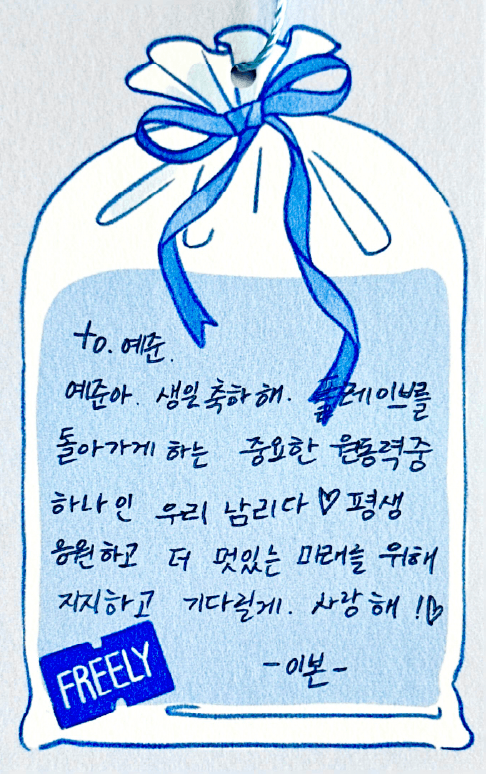 to. 예준.
예준아. 생일 축하해. 플레이브를
돌아가게 하는 중요한 원동력 중
하나인 우리 남리다♡ 평생
응원하고 더 멋있는 미래를 위해
지지하고 기다릴게. 사랑해!♡
FREELY
-이본-